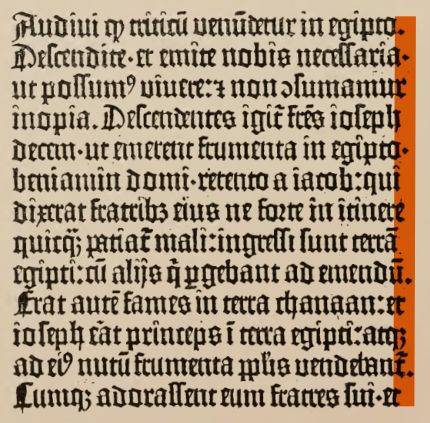 Audiui ꝙ triticū venūdetur in egipto.
Descendite·et emite nobis necessaria·
ut possumꝰ viuere:⁊ non ↄsumamur
inopia. Descendentes igit̄ fr̄es ioseph
decem·ut emerent frumenta in egipto·
beniamin domi·retento a iacob:qui
dixerat fratribꝫ eius ne forte in itinere
quicꝙ̄ patiat̄ mali:ingressi sunt terrā
egipti:cū alijs q̄ ꝑgebant ad emendū.
Erat autē fames in terra chanaan:et
ioseph erāt princeps ī terra egipti:atqꝫ
ad eiꝰ nutū frumenta pplis vendebant̄.
Cumqꝫ adorassent eum fratres sui·et